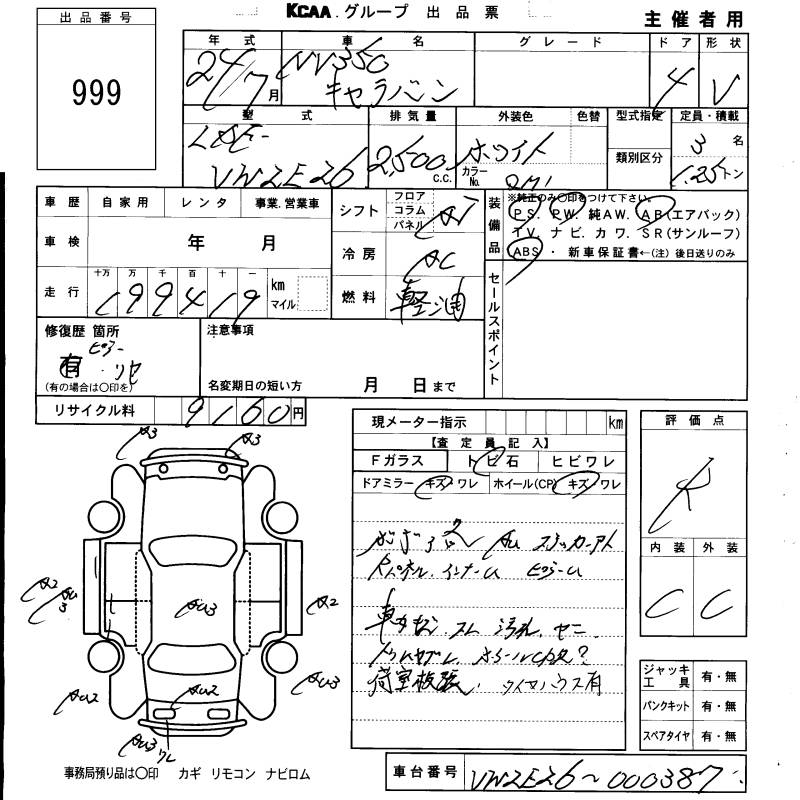 KCAA.グループ 出品票
主催者用
出品番号
999
年式 車名 グレード ドア 形状
24/7月 NV350 キャラバン 4 V
型式 排気量 外装色 色替 型式指定 定員・積載
LDF-VW2E26 2500 C.C. ホワイト カラーNo. QM1 類別区分 3名 1.25トン
車歴 自家用 レンタ 事業.営業車
車検 年 月
走行 十万 万 千 百 十 一 km マイル
199419
シフト フロア コラム パネル AT
冷房 AC
燃料 軽油
装備品
※純正のみ〇印をつけて下さい。
PS. PW. 純AW. AB(エアバック)
TV. ナビ. カワ. SR(サンルーフ)
ABS ・ 新車保証書←(注)後日送りのみ
セールスポイント
修復歴 箇所
有 ピラー・リヤ
(有の場合は〇印を)
注意事項
名変期日の短い方 月 日まで
リサイクル料 9160円
現メーター指示 km
【査定員記入】
Fガラス トビ石 ヒビワレ
ドアミラー キズ・ワレ ホイール(CP) キズ・ワレ
AU ステッカーアト
Rパネル.インナーU ピラーU
スレ 汚れ.
荷室板張. タイヤハウス有
評価点
R
内装 外装
C C
ジャッキ工具 有・無
パンクキット 有・無
スペアタイヤ 有・無
A3 A3
A2 AU3 AU3 A2
AU2 AU2 AU3
AU3 ワレ
事務局預り品は〇印 カギ リモコン ナビロム
車台番号 VW2E26~000387